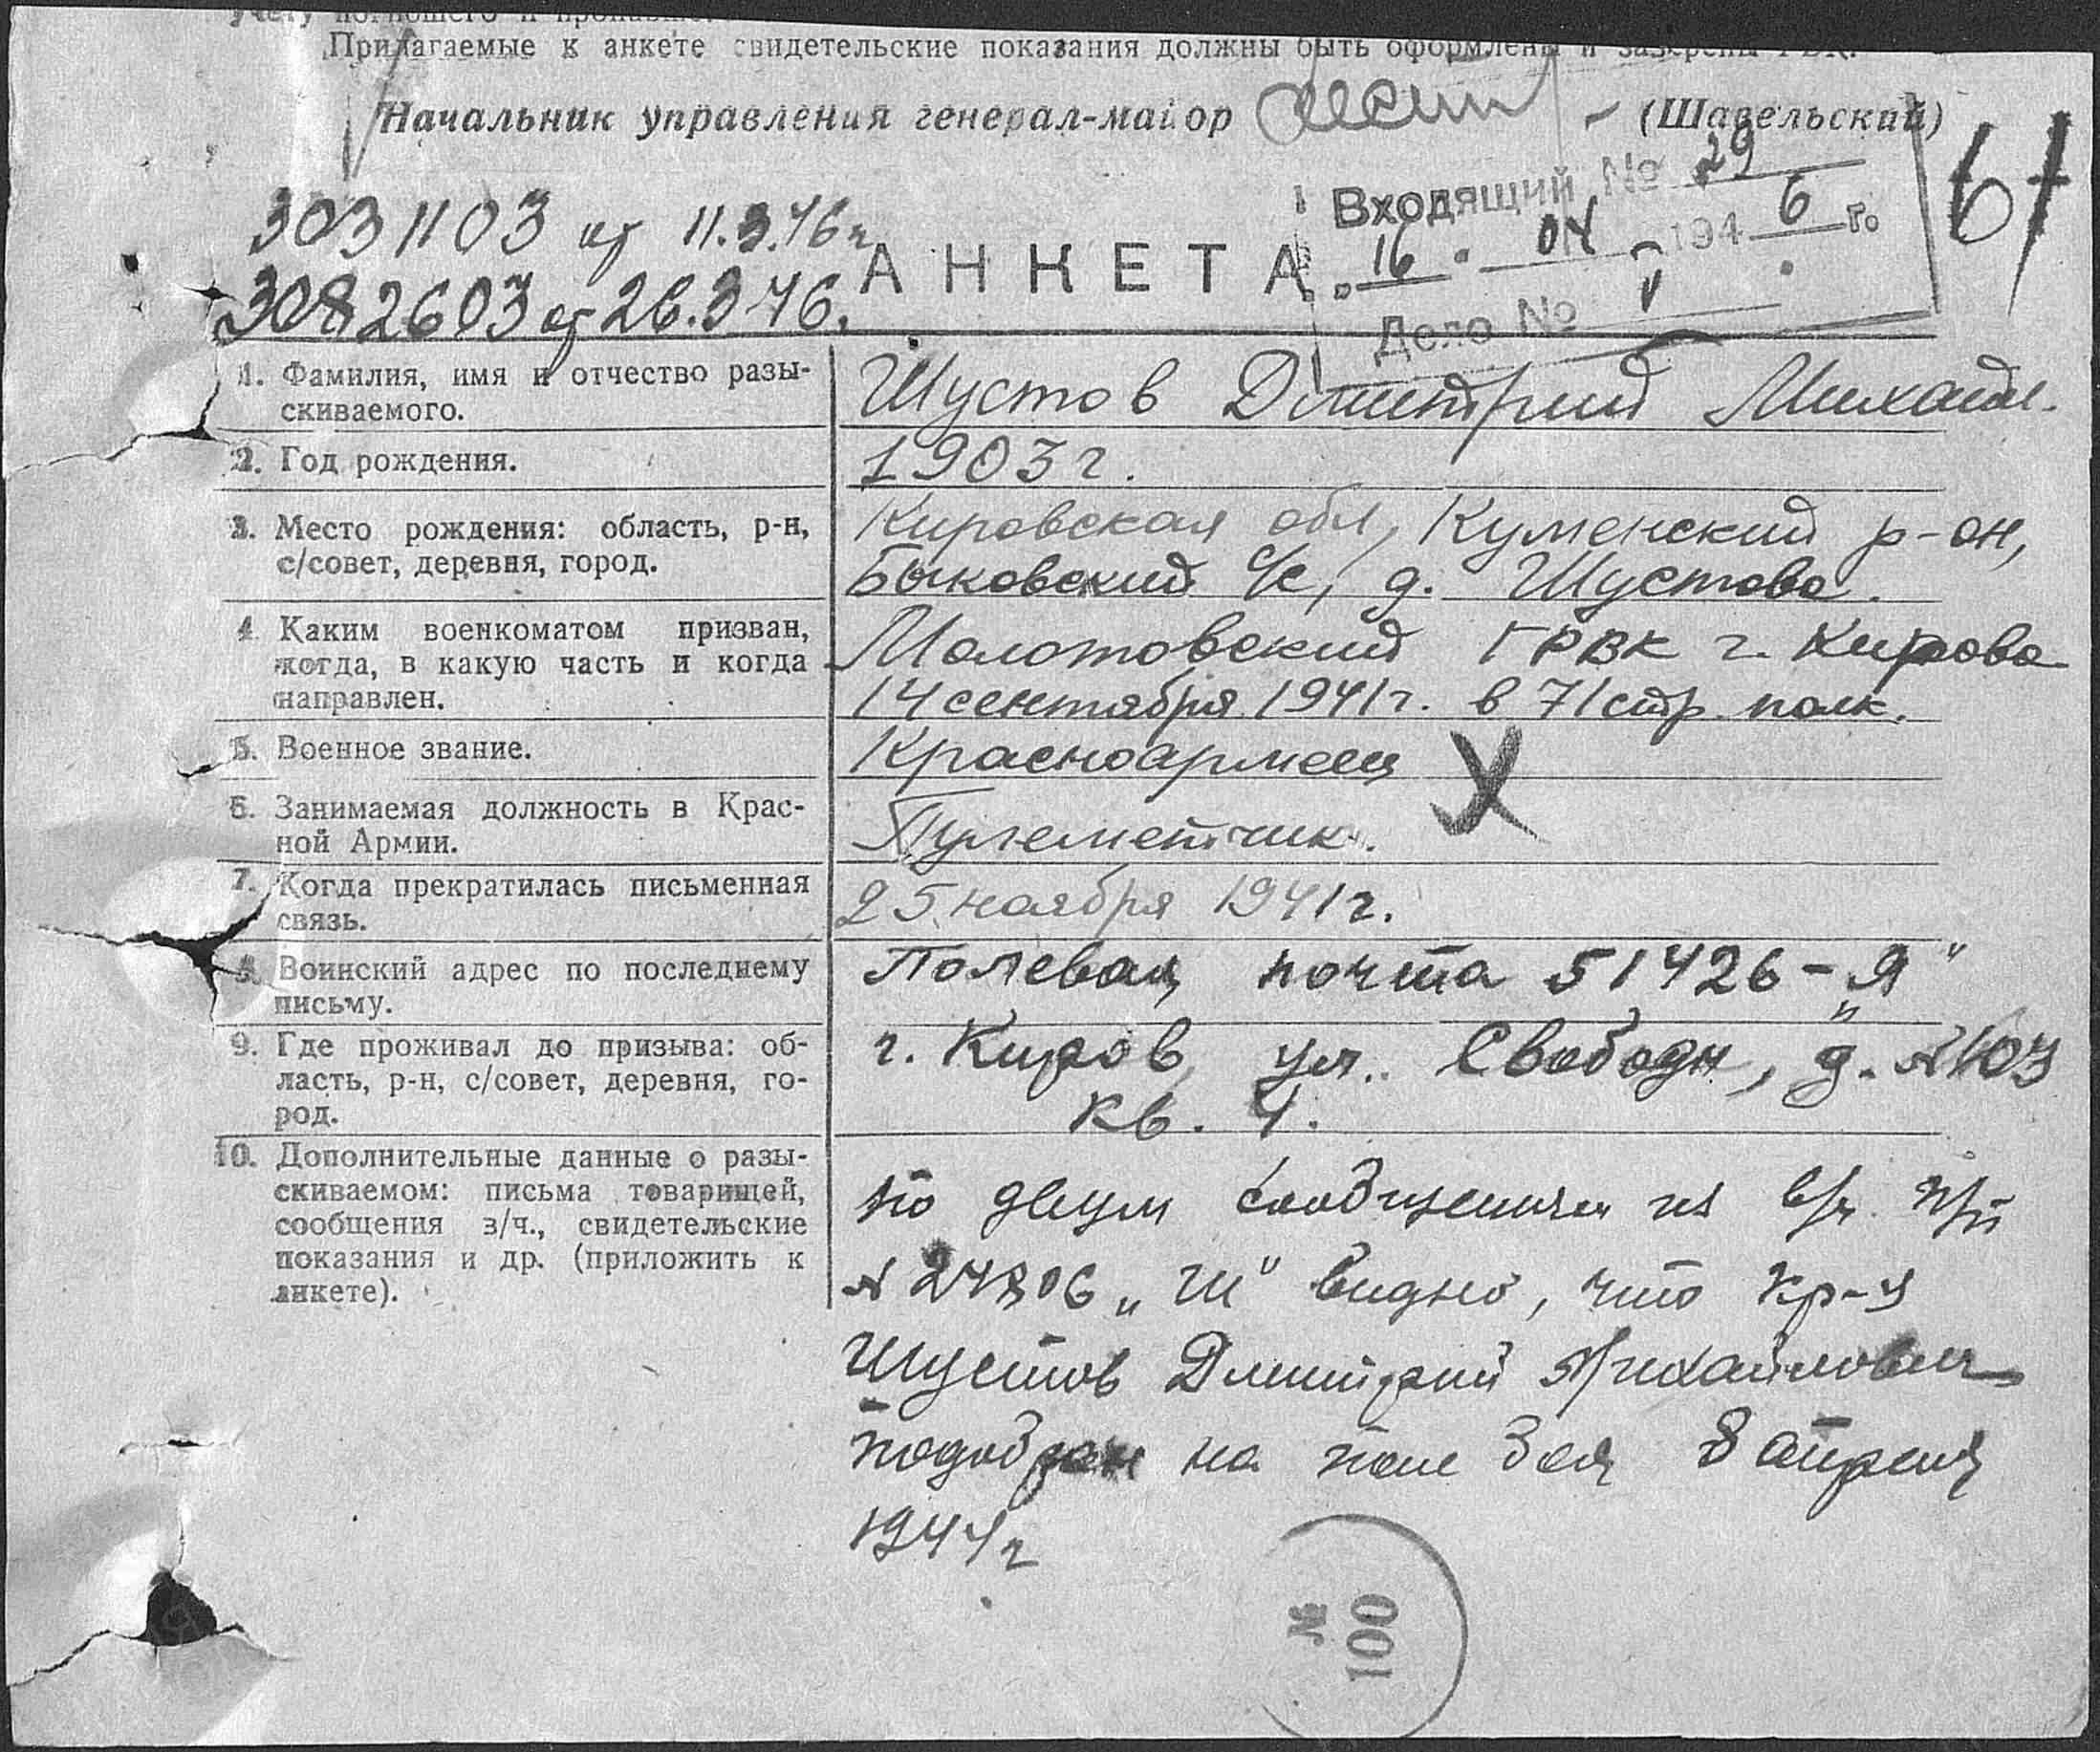 Прилагаемые к анкете свидетельские показания должны быть оформлены и заверены РВК.
Начальник управления генерал-майор (Шавельский)
61
Входящий № 29
303 1103 от 11.3.46г
16 04 1946 г.
АНКЕТА
3082603 от 26.3.46.
Дело №
1. Фамилия, имя и отчество разы-
скиваемого.
Шустов Дмитрий Михайл.
2. Год рождения.
1903 г.
3. Место рождения: область, р-н,
с/совет, деревня, город.
Кировская обл, Куменский р-он,
Быковский с/с, д. Шустово.
4. Каким военкоматом призван,
когда, в какую часть и когда
направлен.
Молотовский ГРВК г. Кирова
14 сентября 1941 г. в 71 стр. полк.
5. Военное звание.
Красноармеец
6. Занимаемая должность в Крас-
ной Армии.
Пулеметчик.
7. Когда прекратилась письменная
связь.
25 ноября 1941 г.
8. Воинский адрес по последнему
письму.
Полевая почта 51426-„Я"
9. Где проживал до призыва: об-
ласть, р-н, с/совет, деревня, го-
род.
г. Киров, ул. Свободы, д. №103
кв. 4.
10. Дополнительные данные о разы-
скиваемом: письма товарищей,
сообщения в/ч., свидетельские
показания и др. (приложить к
анкете).
по двум сообщениям из в/ч п/п
№ 24806 „Ш" видно, что кр-ц
Шустов Дмитрий Михайлович
подобран на поле боя 8 апреля
1944 г
№
100